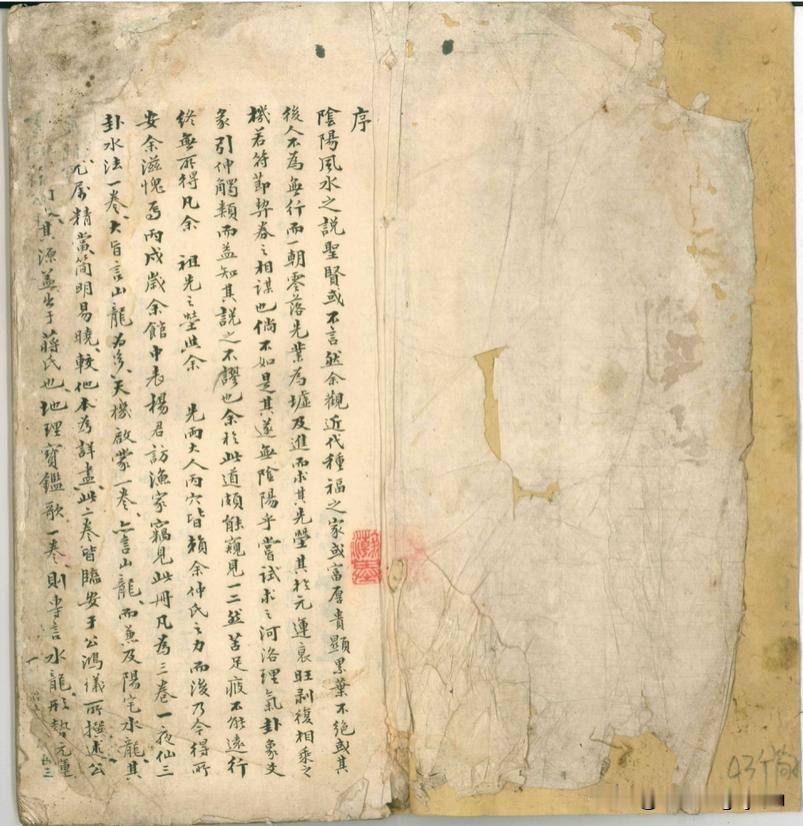 序
陰陽風水之説聖賢或不言然余觀近代種福之家或富厚貴顯累葉不絶或其
後人不為無行而一朝零落先業為墟及進而求其先塋其於元運衰旺剥復相乘之
機若符節契券之相謀也倘不如是其遂無陰陽乎嘗試求之河洛理氣卦象爻
彖引伸觸類而益知其説之不謬也余於此道頗能窺見一二然苦足疲不能遠行
終無所得凡余 祖先之塋與余 先両大人両穴皆賴余仲氏之力而後乃今得所
安余滋愧焉丙戌歲余館中表楊君訪漁家竊見此冊凡為三卷一夜仙三
卦水法一卷、大旨言山龍為多、天機啟蒙一卷、亦言山龍、而兼及陽宅水龍、其
尤屬精當簡明易曉、較他本為詳盡、此二卷皆臨安于公鴻儀所撰述公
其源盖出于蔣氏也、地理寶鑑歌一卷、則半言水龍、形勢元運
43个筒